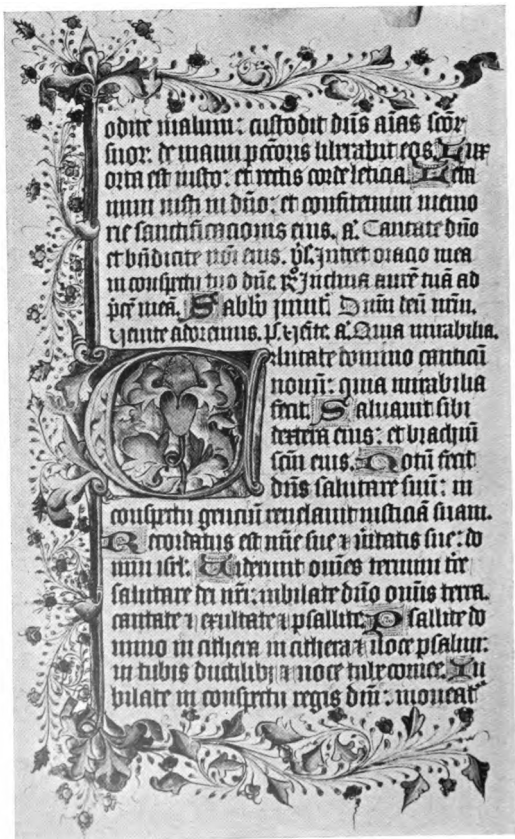 odite malum: custodit dns aias scor
suor: de manu pctoris liberabit eos. Lux
orta est iusto: et rectis corde leticia. Leta
mini iusti in dno: et confitemini memo
rie sanctificacionis eius. a. Cantate dno
et bndicite noi eius. ps. Intret oracio mea
in conspectu tuo dne. R Inclina aure tua ad
pce mea. Sabbo inuit
Venite adoremus. ps. Venite. a. Quia mirabilia.
Cantate domino canticu
nouu: quia mirabilia
fecit. Saluauit sibi
dextera eius: et brachiu
scm eius. Notu fecit
dns salutare suu: in
conspectu genciu reuelauit iusticia suam.
Recordatus est mie sue et uitatis sue: do
mui isrl. Viderunt omnes termini tre
salutare dei nri: iubilate dno omnis terra.
cantate et exultate et psallite. Psallite do
mino in cithera in cithera et uoce psalmi:
in tubis ductilibz et uoce tube cornee. Iu
bilate in conspectu regis dni: moueat